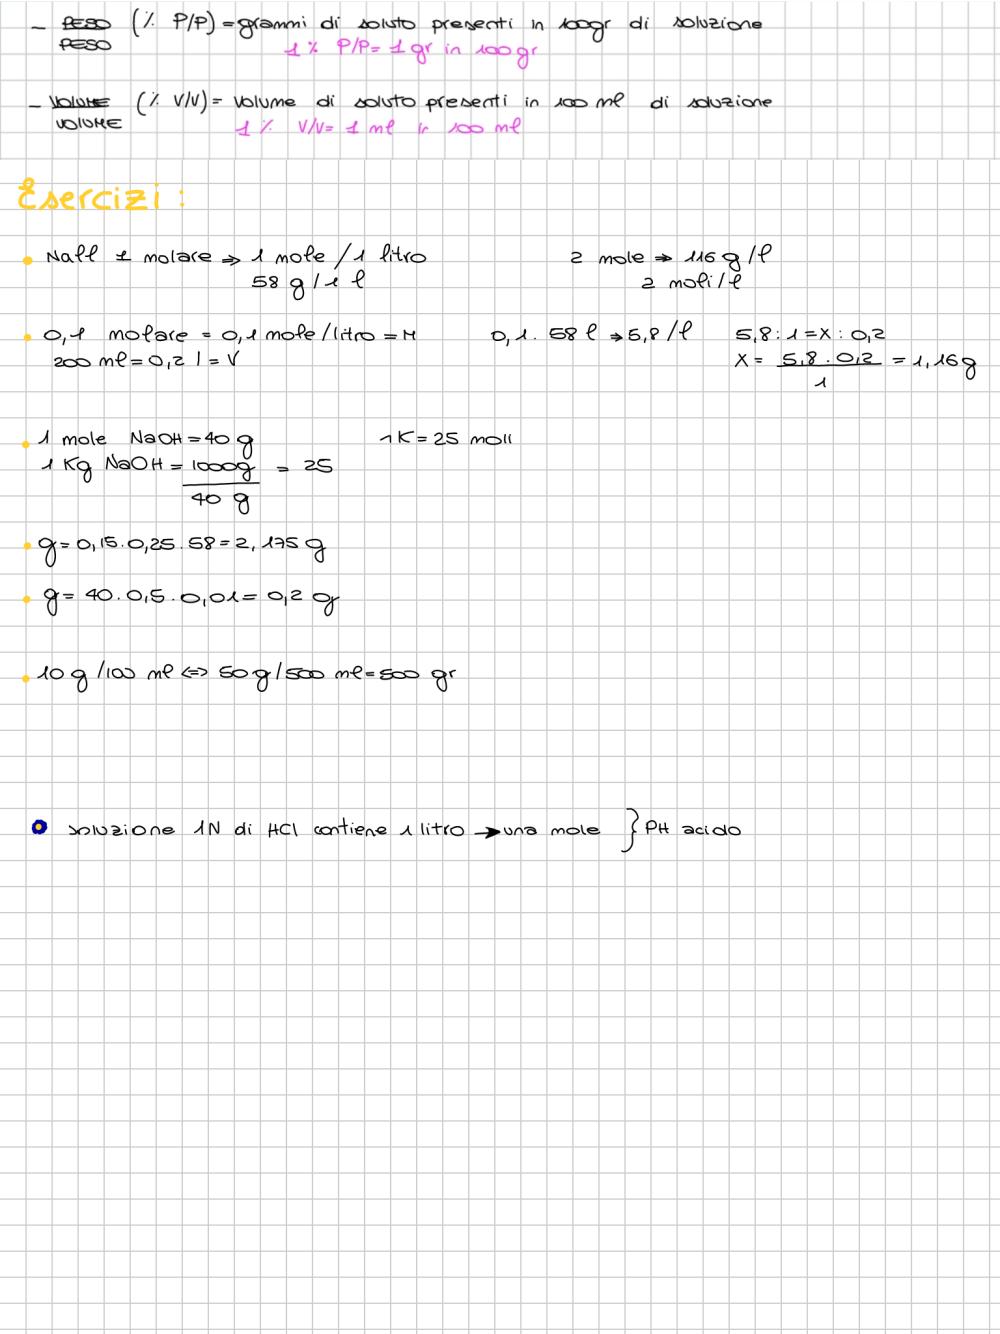 - PESO (% P/P) = grammi di soluto presenti in 100gr di soluzione
PESO
1% P/P = 1 gr in 100 gr
- VOLUME (% V/V) = Volume di soluto presenti in 100 ml di soluzione
VOLUME
1% V/V = 1 ml in 100 ml
Esercizi:
• NaCl 1 molare ⇒ 1 mole / 1 litro 2 mole ⇒ 116 g/l
58 g / 1 l 2 moli/l
• 0,1 molare = 0,1 mole/litro = M 0,1 . 58 l ⇒ 5,8 /l 5,8 : 1 = X : 0,2
200 ml = 0,2 l = V X = 5,8 . 0,2 = 1,16 g
1
• 1 mole NaOH = 40 g 1K = 25 moli
1 Kg NaOH = 1000g = 25
40 g
• g = 0,15 . 0,25 . 58 = 2,175 g
• g = 40 . 0,5 . 0,01 = 0,2 g
• 10 g /100 ml <=> 50 g/500 ml = 500 gr
soluzione 1N di HCl contiene 1 litro → una mole } PH acido